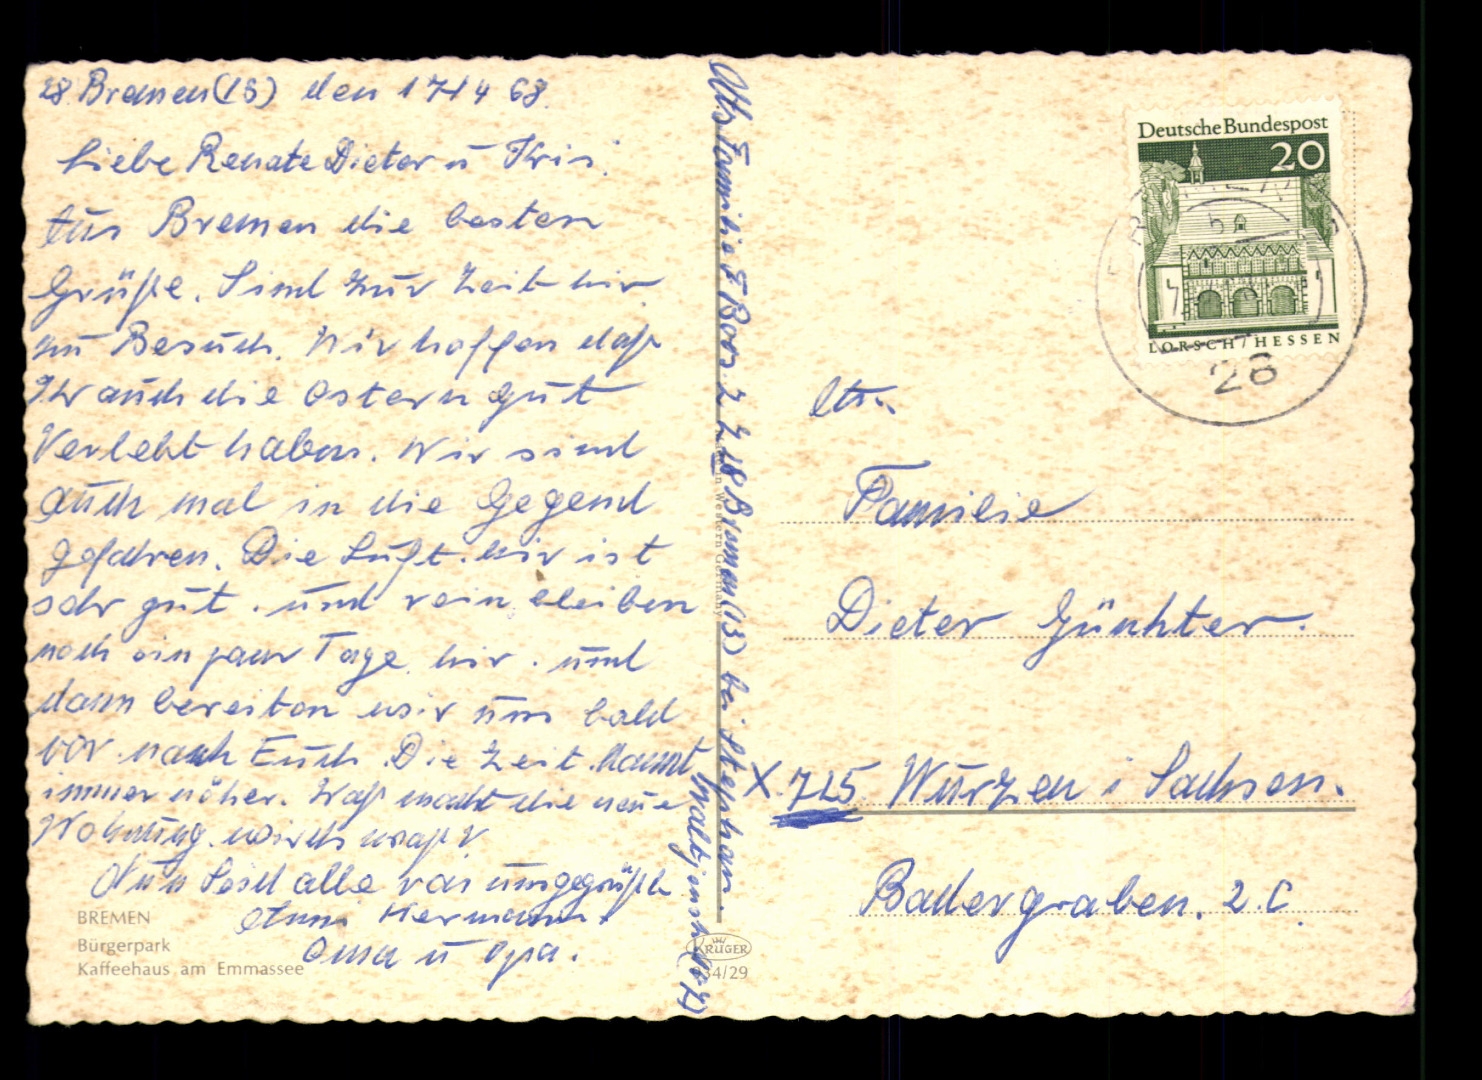 28 Bremen (13) den 17/4 68.
Liebe Renate Dieter u Kris!
Aus Bremen die besten
Grüße. Sind zur Zeit hir
zu Besuch. Wir hoffen daß
Ihr auch die Ostern gut
Verlebt haben. Wir sind
auch mal in die Gegend
gefahren. Die Luft hir ist
sehr gut. und rein bleiben
noch ein paar Tage hir. und
dann bereiten wir uns bald
vor nach Euch. Die Zeit kommt
immer näher. Waß macht die neue
Wohnung. wirds waß?
Nun Seid alle von uns gegrüßt
Anni Hermann.
Oma u Opa.
BREMEN
Bürgerpark
Kaffeehaus am Emmasee
Abs Familie F Boos z Z 28 Bremen (13) bei Stephan.
Western Germany
KRÜGER
/29
Deutsche Bundespost
20
LORSCH/HESSEN
28
An
Familie
Dieter Günhter.
X 725 Wurzen i Sachsen.
Badergraben. 2 C.